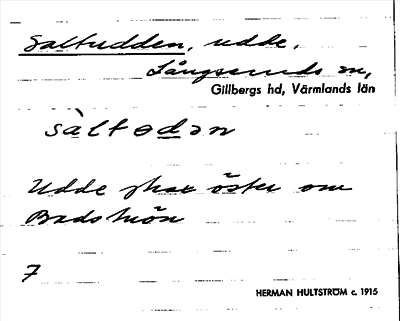 Saltudden, udde,
Långseruds sn,
Gillbergs hd, Värmlands län
sàltodən
Udde öster om
Badstuön
7
HERMAN HULTSTRÖM c. 1915